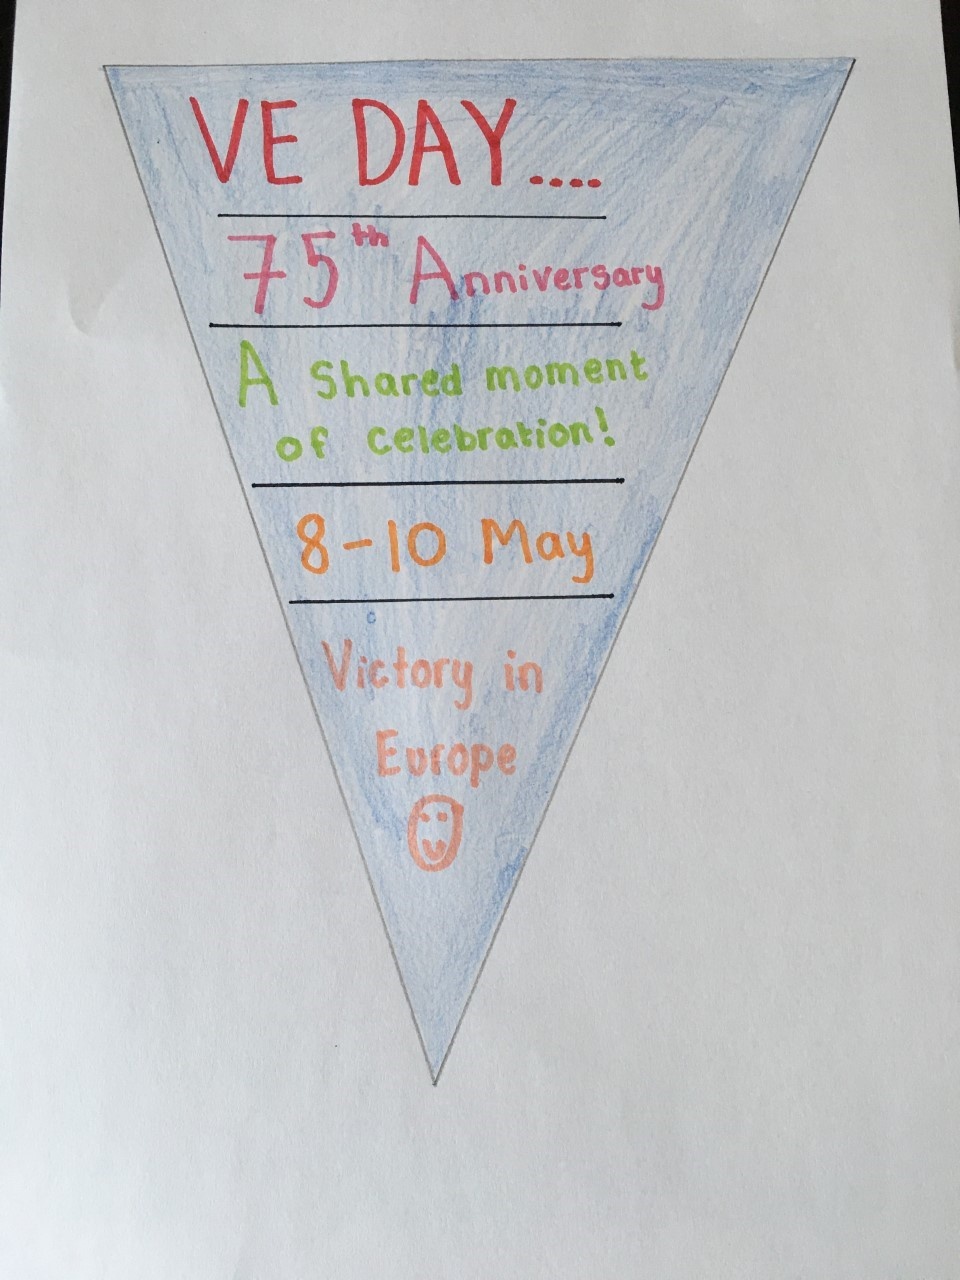 VE DAY....
75th Anniversary
A Shared moment
of celebration!
8-10 May
Victory in
Europe